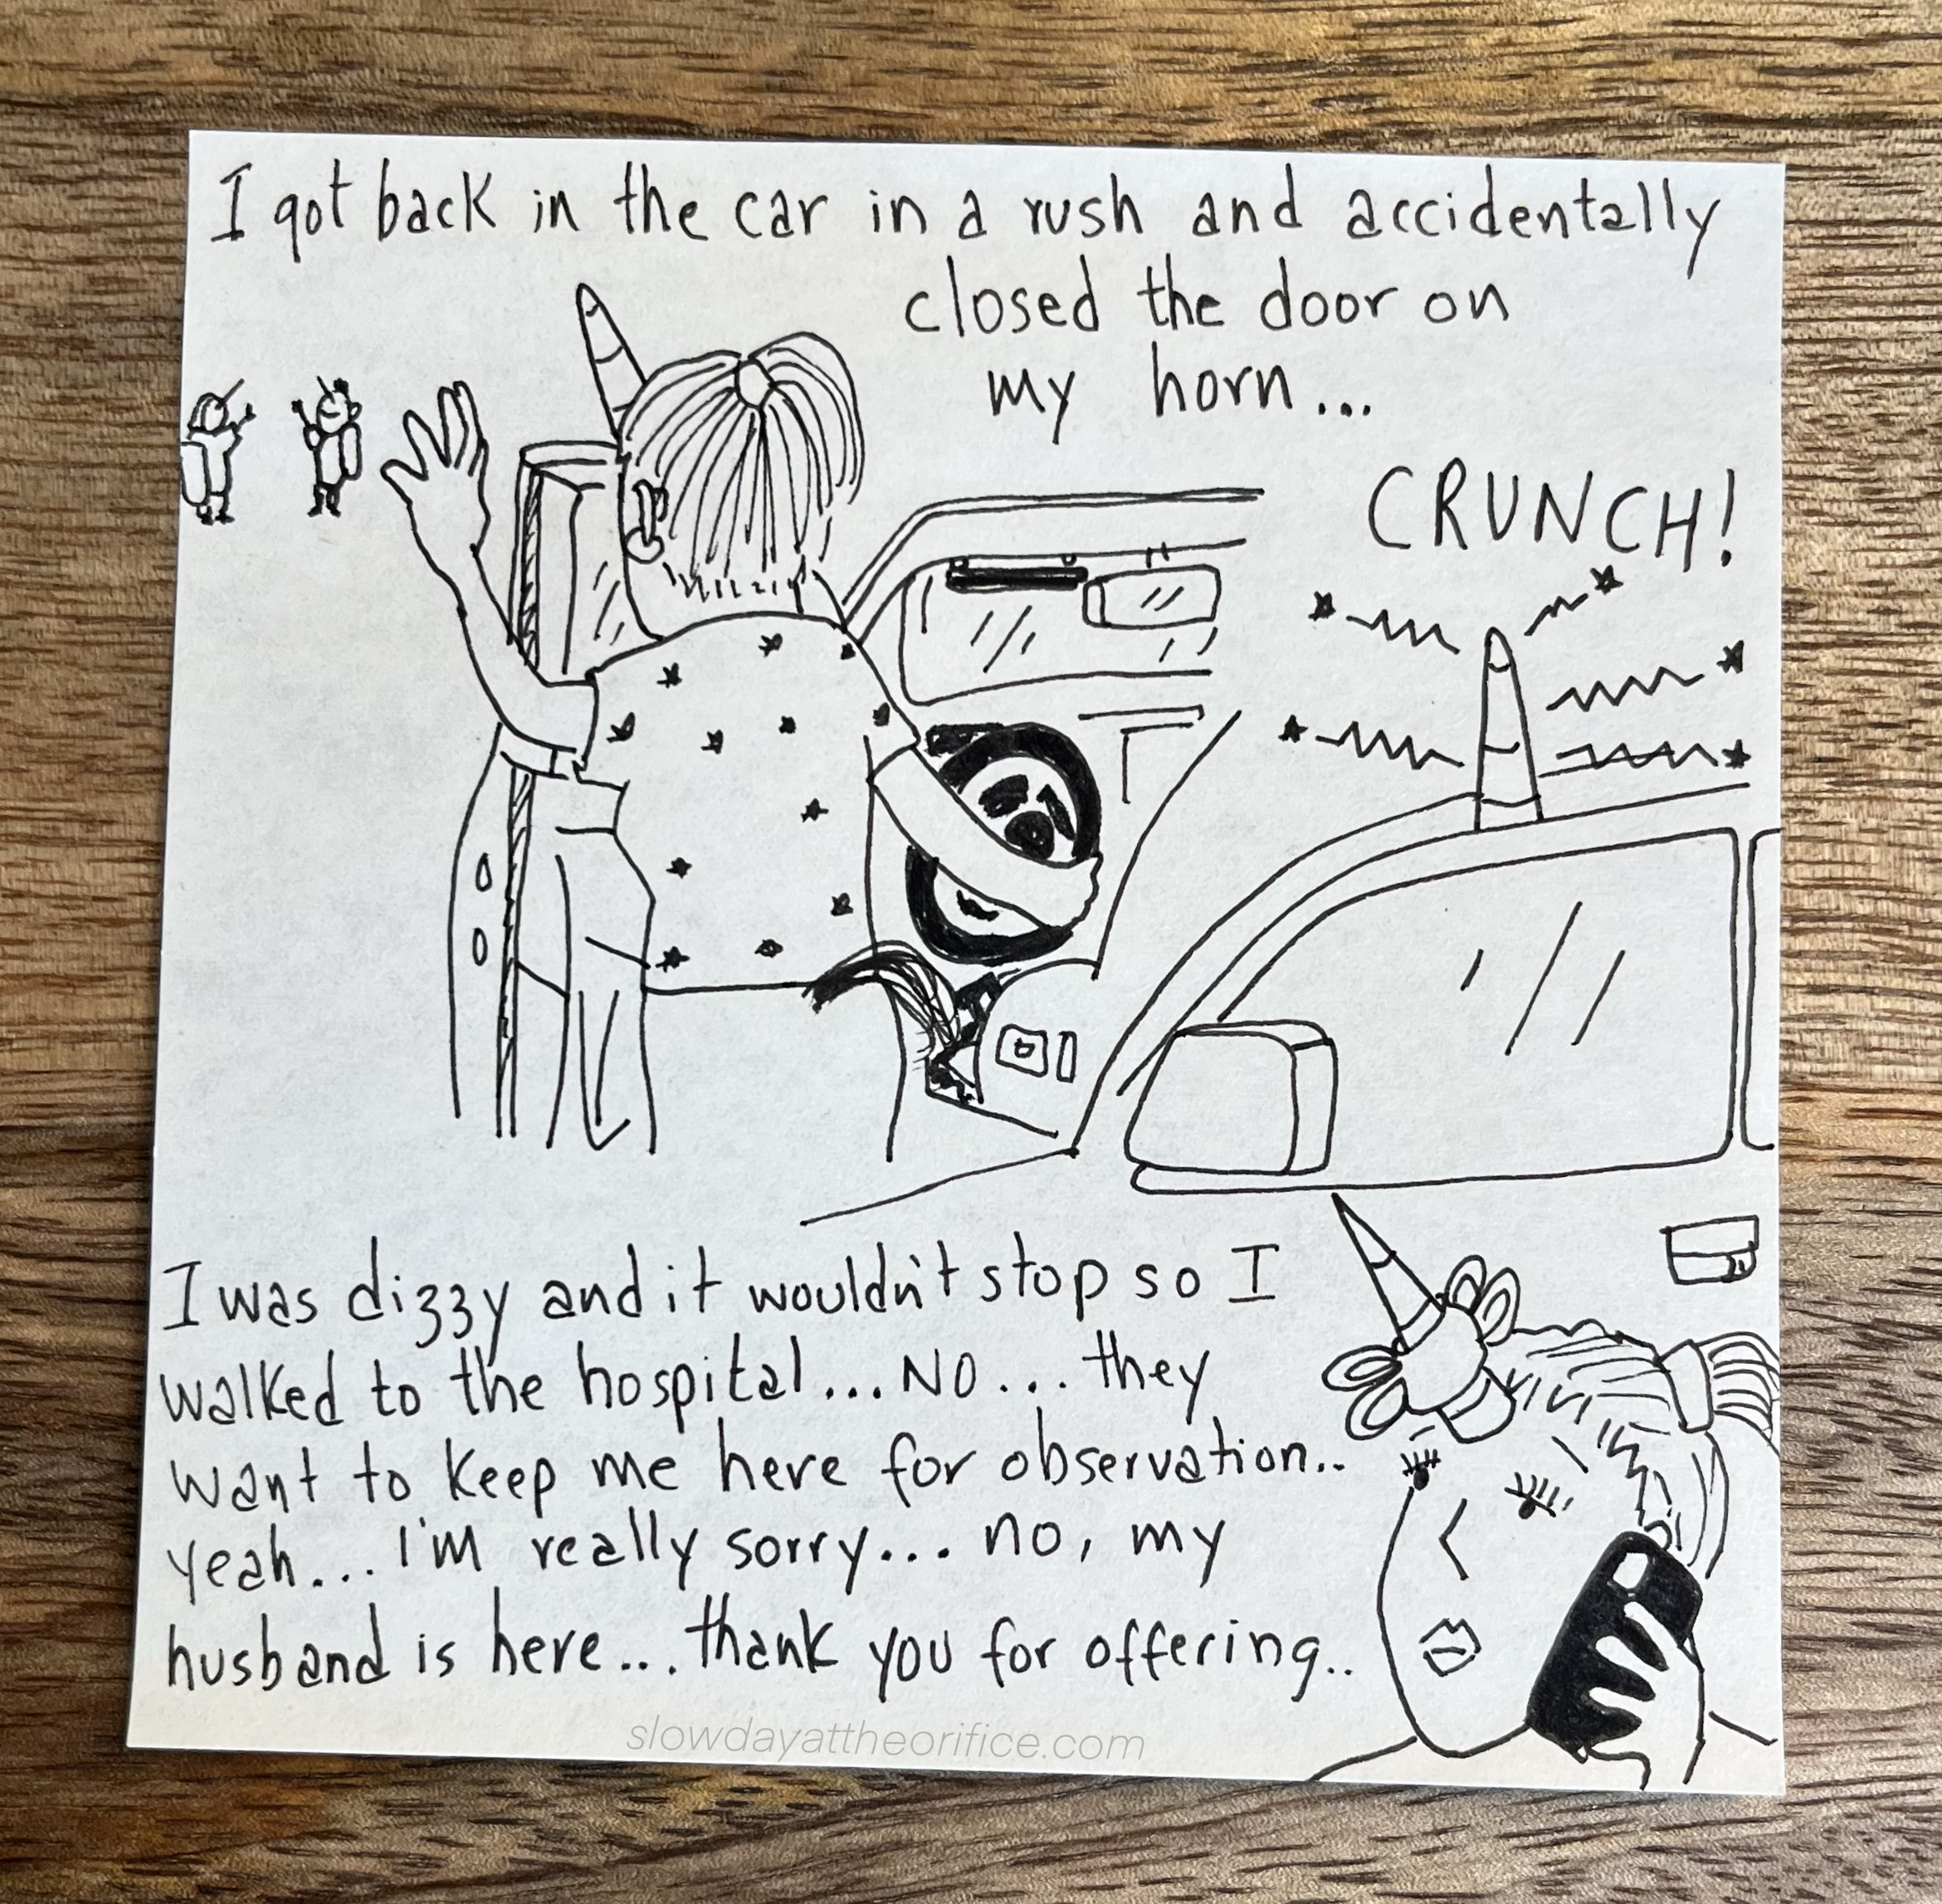 I got back in the car in a rush and accidentally
closed the door on
my horn...
CRUNCH!
I was dizzy and it wouldn't stop so I
walked to the hospital...NO... they
want to keep me here for observation..
yeah... I'm really sorry... no, my
husband is here... thank you for offering..
slowdayattheorifice.com